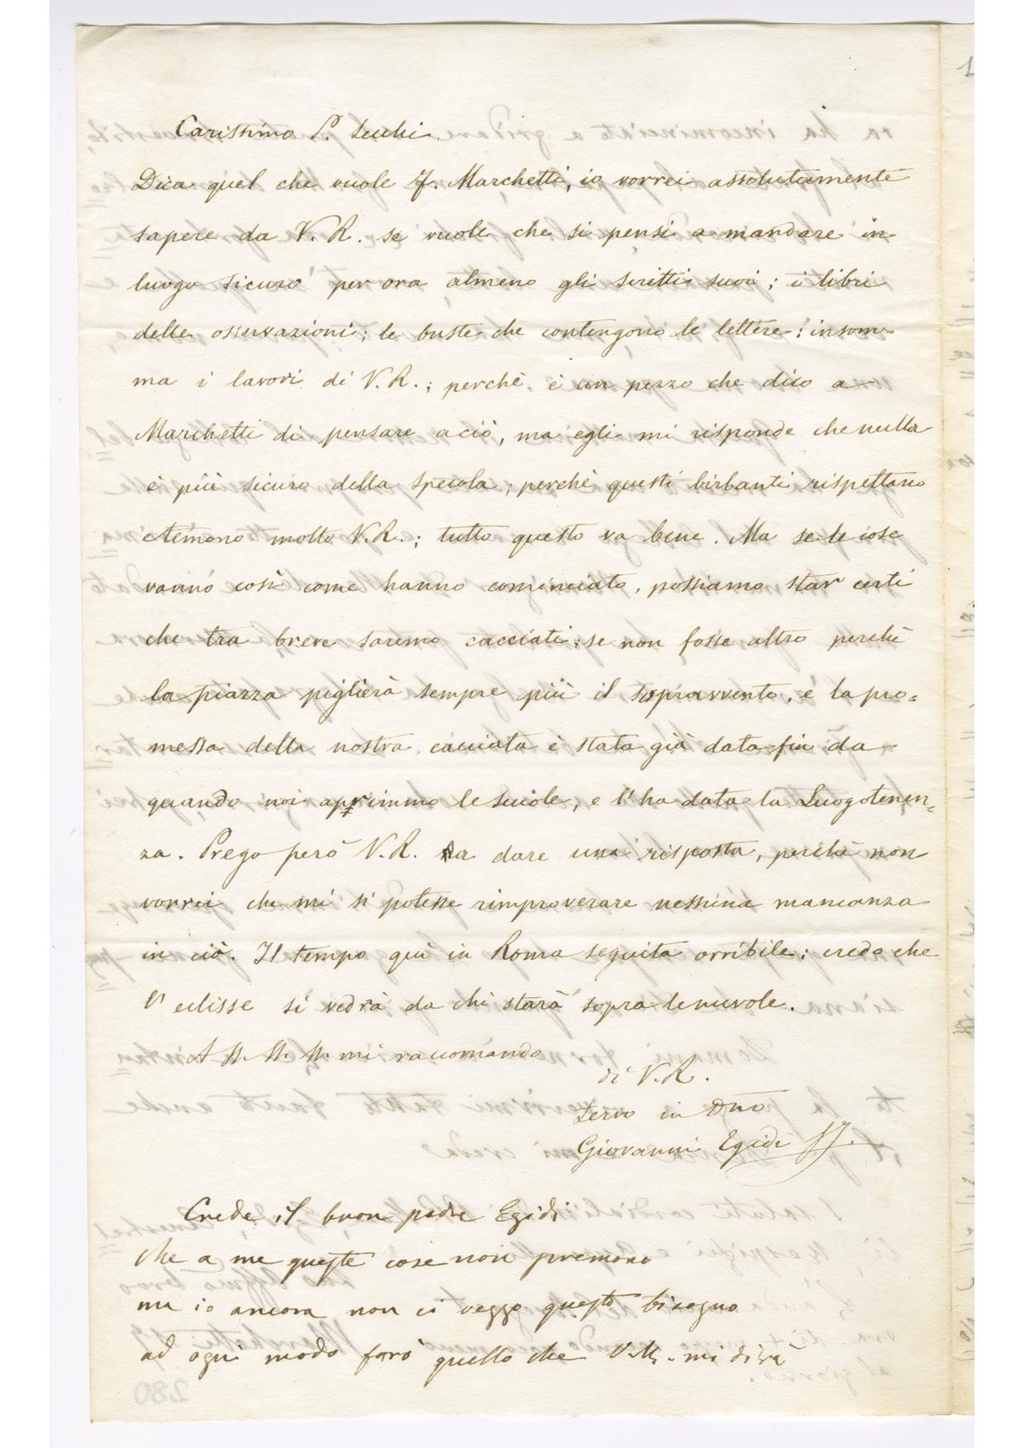 Carissimo P. Secchi.
Dica quel che vuole f. Marchetti, io vorrei assolutamente
sapere da V. R. se vuole che si pensi a mandare in
luogo sicuro per ora almeno gli scritti suoi; i libri
delle osservazioni; le buste che contengono le lettere; insom-
ma i lavori di V. R.; perchè è un pezzo che dico a
Marchetti di pensare a ciò, ma egli mi risponde che nulla
è più sicuro della specola; perchè questi birbanti rispettano
e temono molto V. R.; tutto questo va bene. Ma se le cose
vanno così come hanno cominciato, possiamo star certi
che tra breve saremo cacciati; se non fosse altro perchè
la piazza piglierà sempre più il sopravvento, e la pro=
messa della nostra cacciata è stata già data fin da
quando noi aprimmo le scuole, e l'ha data la Luogotenen=
za. Prego però V. R. a dare una risposta, perchè non
vorrei che mi si potesse rimproverare nessuna mancanza
in ciò. Il tempo quì in Roma seguita orribile; credo che
l'eclisse si vedrà da chi starà sopra le nuvole.
A SS. SS. SS. mi raccomando
di V. R.
Servo in Dno
Giovanni Egidi SJ.
Crede il buon padre Egidi
che a me queste cose non premono
ma io ancora non ci veggo questo bisogno
ad ogni modo farò quello che V. R. mi dirà
280